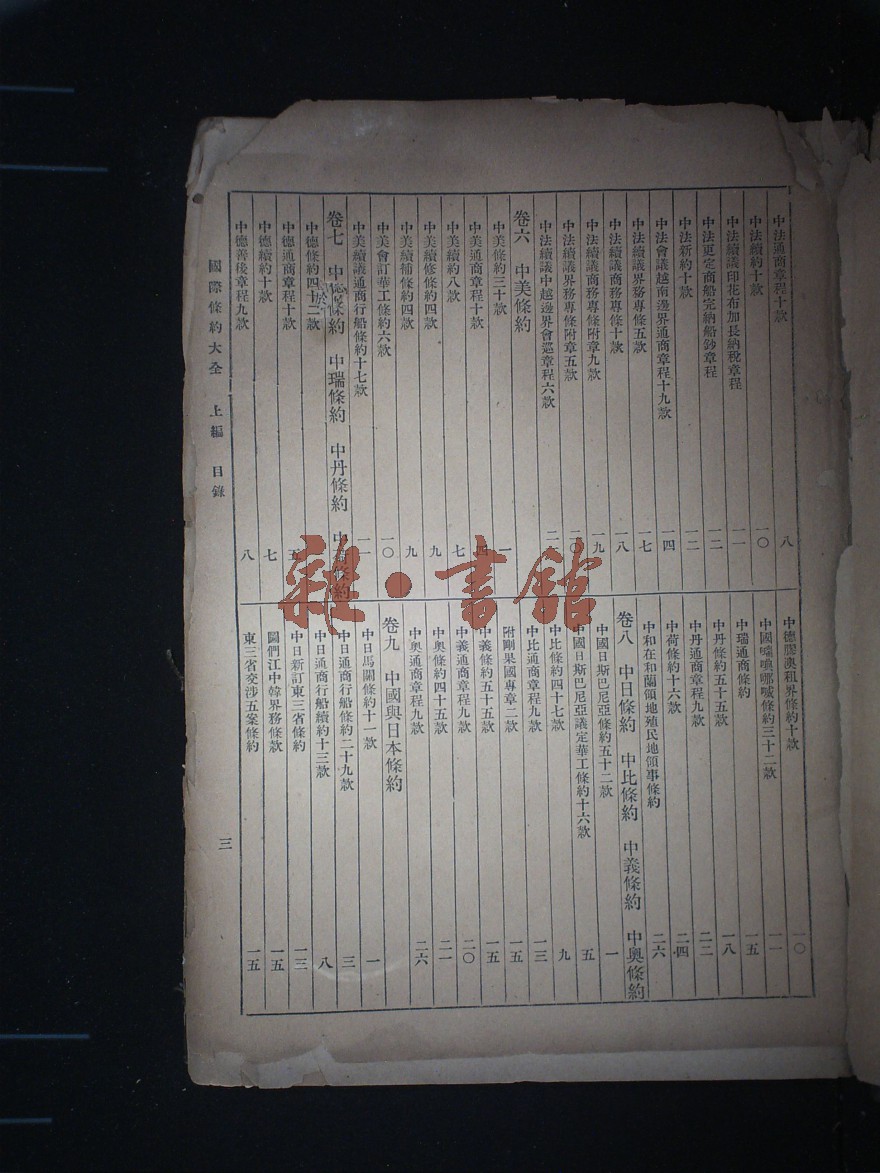 中法通商章程十款 八
中法續約十款 一〇
中法續議印花布加長納稅章程 一一
中法更定商船完納船鈔章程 一二
中法新約十款 一二
中法會議越南邊界通商章程十九款 一四
中法續議界務專條五款 一七
中法續議商務專條十款 一八
中法續議商務專條附章九款 一九
中法續議界務專條附章五款 二〇
中法續議中越邊界會巡章程六款
卷六 中美條約
中美條約三十款 一
中美通商章程十款 四
中美續約八款 七
中美續修條約四款 九
中美續補條約四款 九
中美會訂華工條約六款 一〇
中美續議通商行船條約十七款 一一
卷七 中德條約 中瑞條約 中丹條約 中荷條約
中德條約四十二款
中德通商章程十款 五
中德續約十款 七
中德善後章程九款 八
中德膠澳租界條約十款 一〇
中國㗐㖿㖿㘓條約三十二款 一一
中瑞通商條約 一五
中丹條約五十五款 一八
中丹通商章程九款 二二
中荷條約十六款 二四
中和在和蘭領地殖民地領事條約 二六
卷八 中日條約 中比條約 中義條約 中奧條約
中國日斯巴尼亞條約五十二款 一
中國日斯巴尼亞議定華工條約十六款 五
中比條約四十七款 九
中比通商章程九款 一三
附剛果國專章二款 一五
中義條約五十五款 一五
中義通商章程九款 二〇
中奧條約四十五款 二一
中奧通商章程九款 二六
卷九 中國與日本條約
中日馬關條約十一款 一
中日通商行船條約二十九款 三
中日通商行船續約十三款 八
中日新訂東三省條約 一三
圖們江中韓界務條款 一五
東三省交涉五案條約 一五
國際條約大全 上編 目錄 三
雜·書館